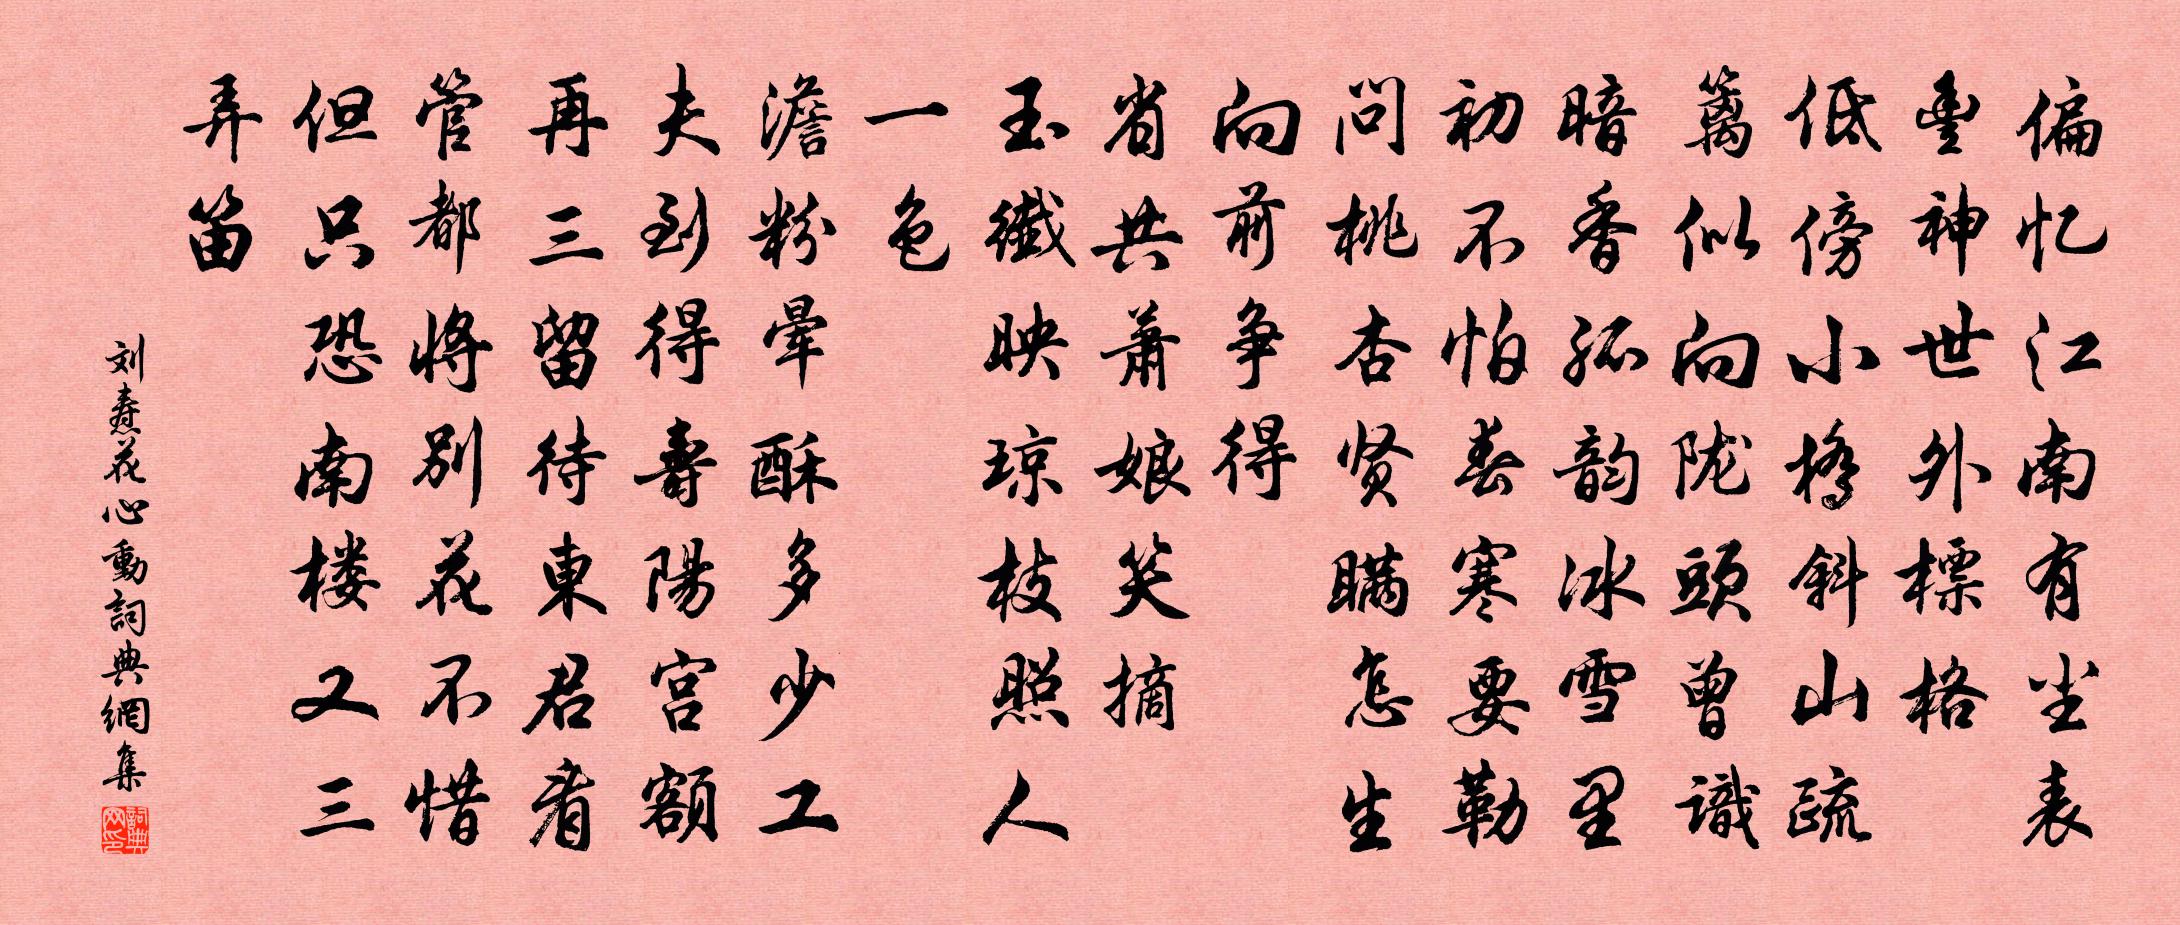 偏忆江南有尘表
豊神世外標格
低傍小橋斜山疏
篱似向陇頭曾識
暗香孤韵冰雪里
初不怕春寒要勒
問桃杏贤瞞怎生
向前争得
省共萧娘笑摘
玉纖映琼枝照人
一色
澹粉晕酥多少工
夫到得壽陽宫额
再三留待東君看
管都将别花不惜
但只恐南楼又三
弄笛
刘焘花心動詞典網集
詞典网印